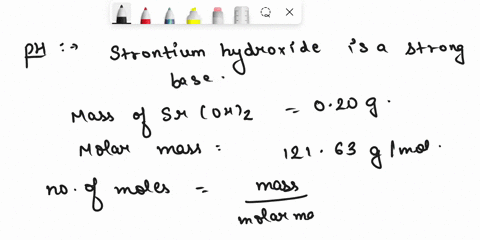 PH :→ Strontium hydroxide is a strong
base.
Mass of Sr(OH)2 = 0.20 g.
Molar mass: 121.63 g/mol.
no. of moles = mass
molar ma